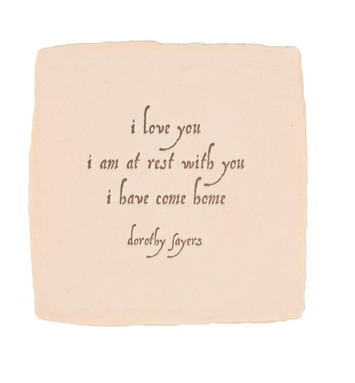 i love you
i am at rest with you
i have come home
dorothy sayers